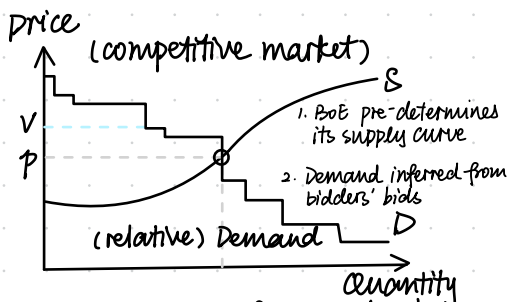 Price
(competitive market)
S
1. BoE pre-determines
its supply curve
V
P
2. Demand inferred from
bidders' bids
D
(relative) Demand
Quantity